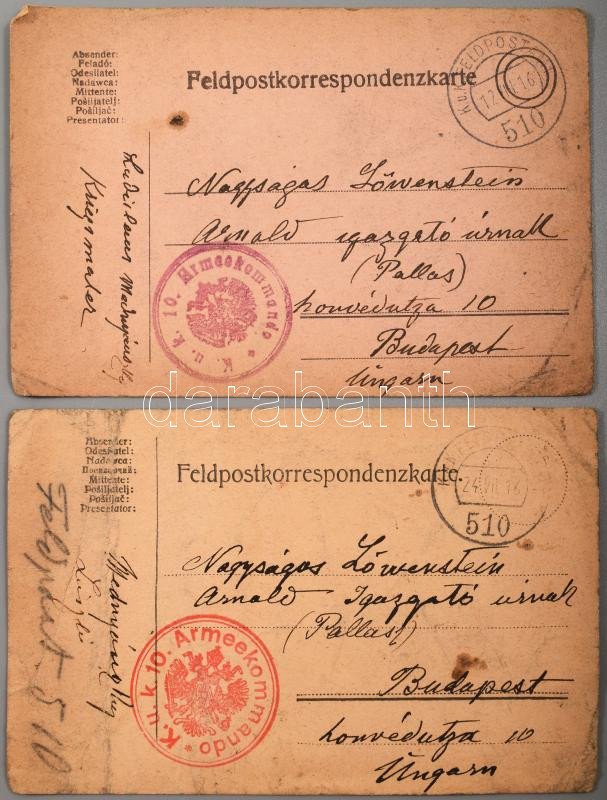 Absender:
Feladó:
Odesílatel:
Nadawca:
Mittente:
Pošiljatelj:
Pošiljač:
Presentator:
Feldpostkorrespondenzkarte
K.u.K. FELDPOST
16
510
Ladislaus Mednyánszky
Kriegsmaler
Nagyságos Löwenstein
Arnold igazgató úrnak
(Pallas)
honvédutza 10
Budapest
Ungarn
K. u. k. 10. Armeekommando *
darabanth
Absender:
Odesílatel:
Nadawca:
Mittente:
Pošiljatelj:
Pošiljač:
Presentator:
Feldpostkorrespondenzkarte.
24.VII.16
510
Feldpost 510
Mednyánszky
Nagyságos Löwenstein
Arnold Igazgató úrnak
(Pallas)
Budapest
honvédutza 10
Ungarn
K. u. k. 10. Armeekommando *